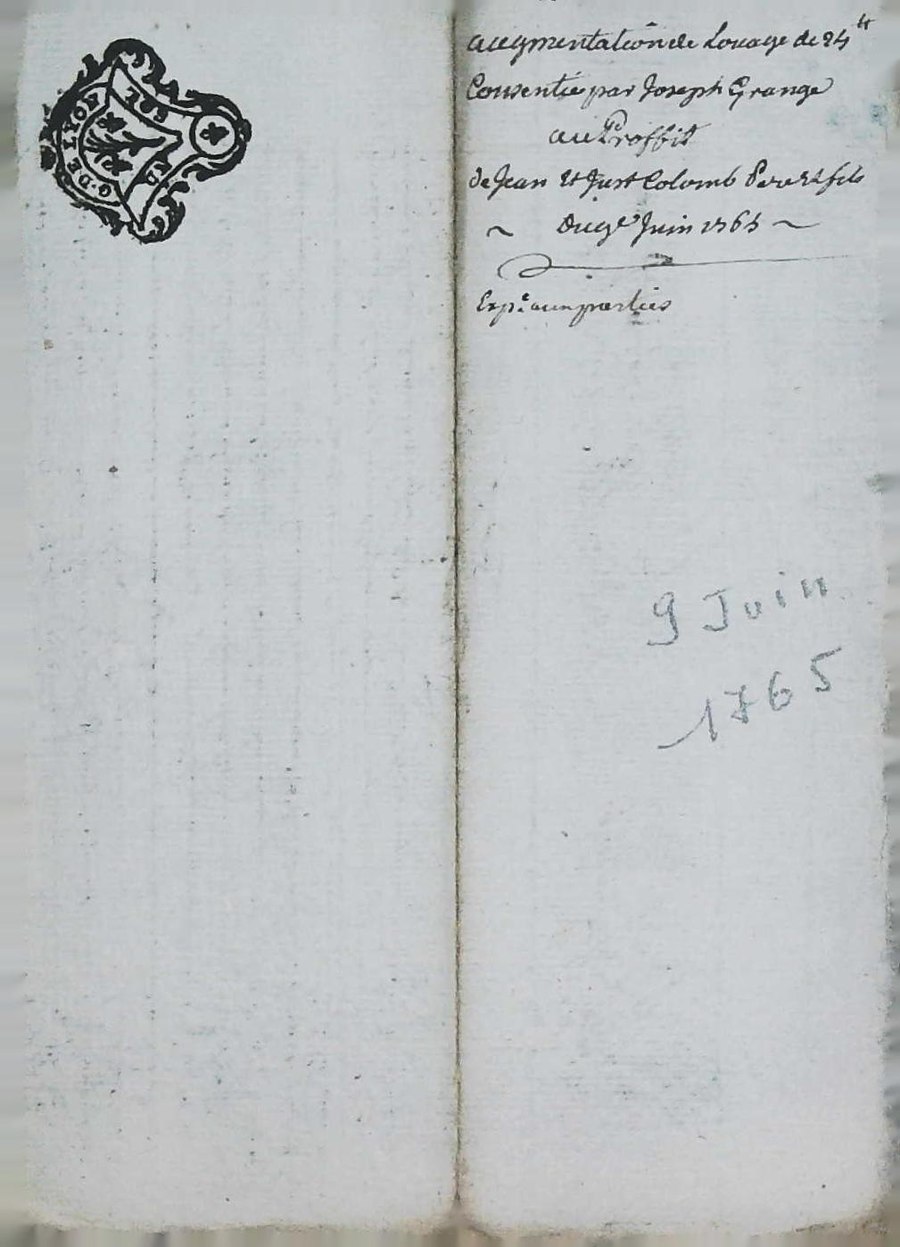 G. DE LYON
augmentation de Louage de 24ᵗᵗ
Consentie par Joseph Grange
au Proffit
de Jean Et Just Colomb Pere et fils
~ Du 9ᵉ Juin 1765 ~
Expᵉ aux parties
9 Juin
1765